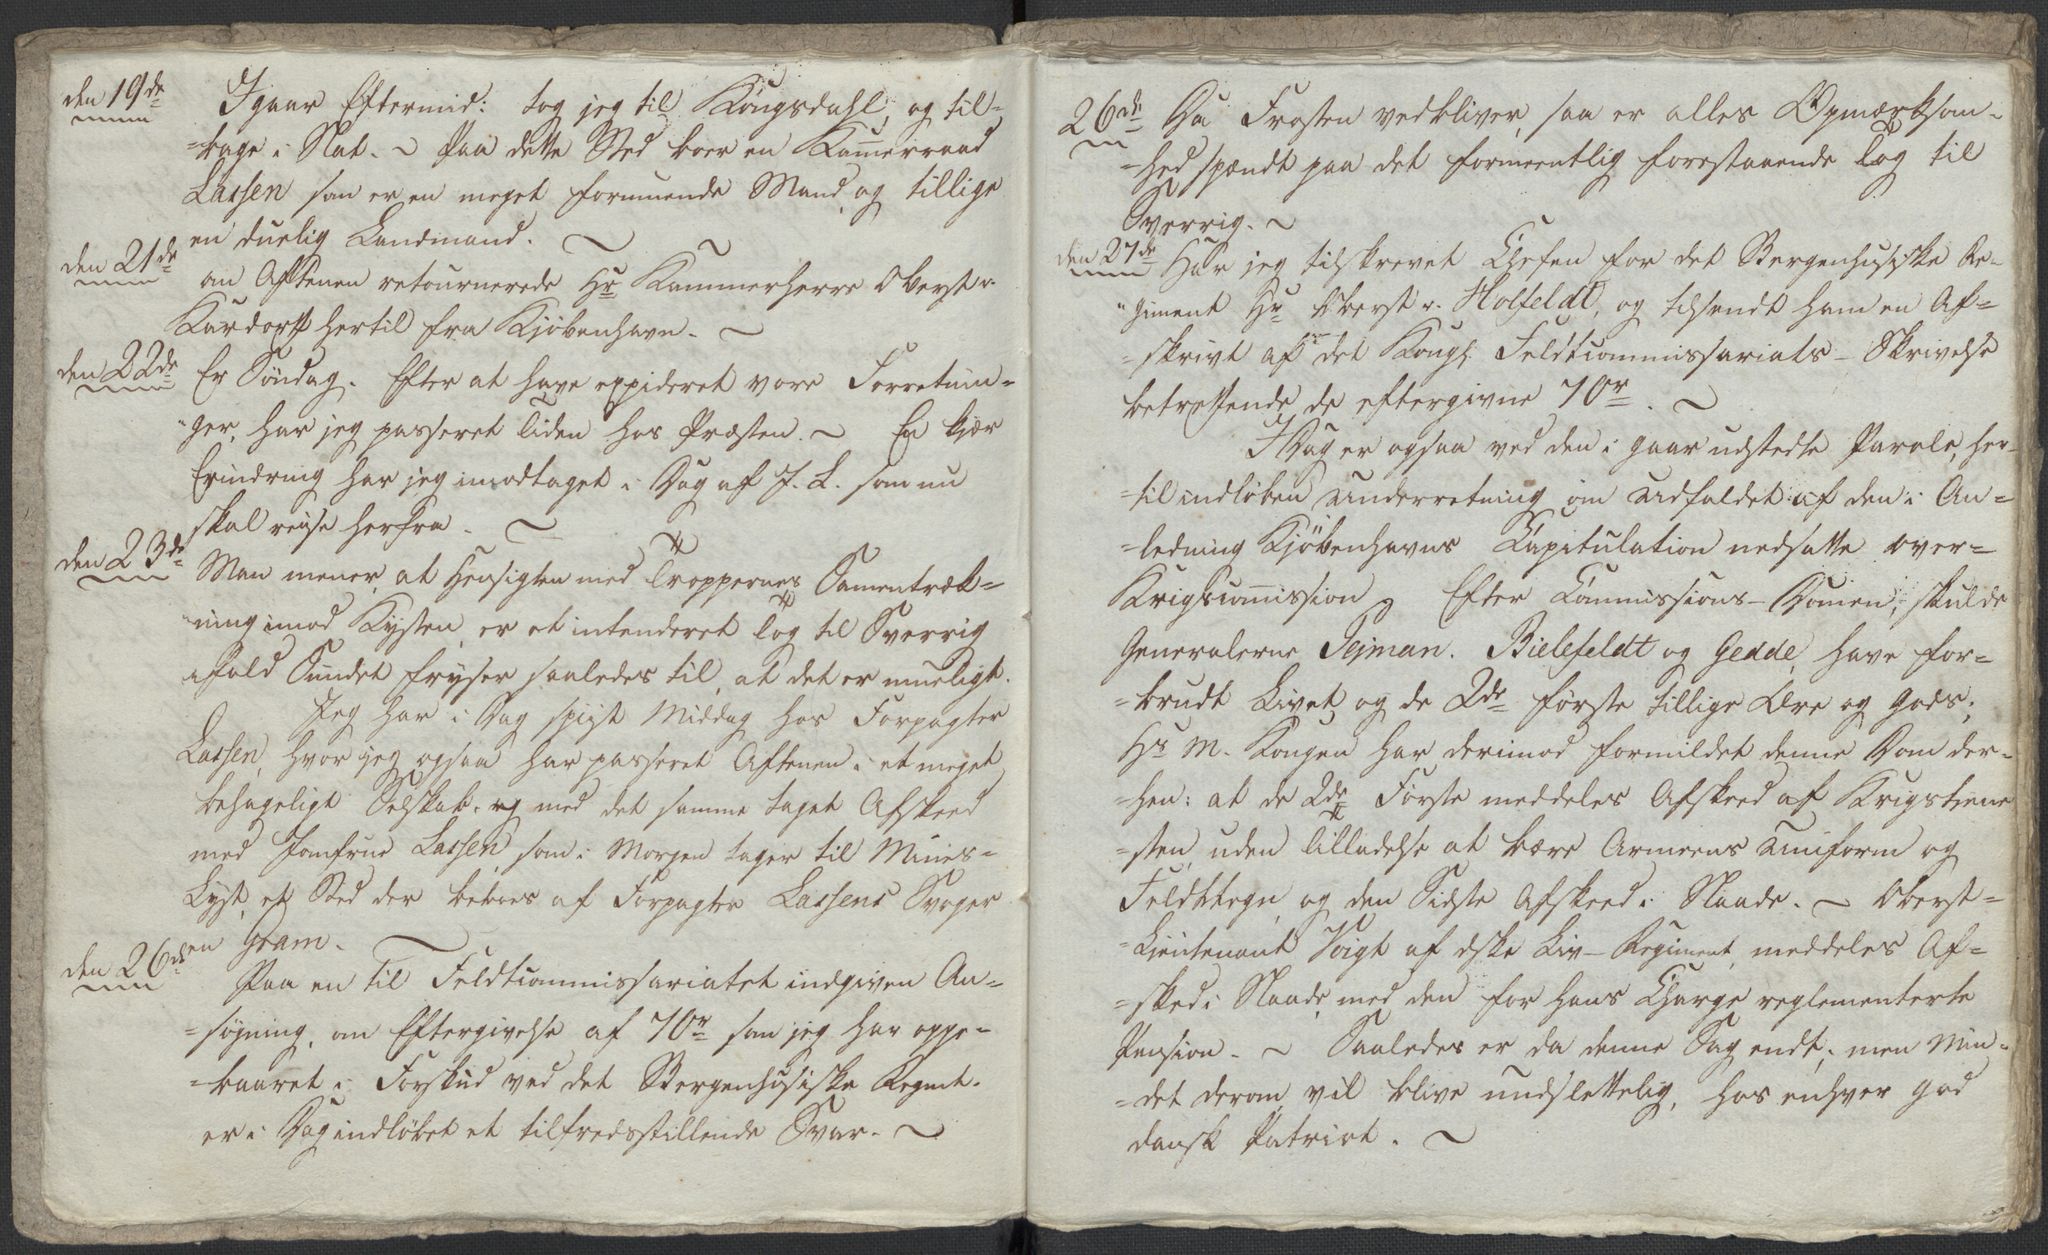 den 19de Igaar Eftermid: tog jeg til Kongsdahl, og til-
-bage i Nat. ~ Paa dette Sted boer en Kammerraad
Lassen som er en meget formuende Mand, og tillige
en duelig Landmand. ~
den 21de om Aftenen retournerede Hr Kammerherre Oberst v.
Kardorff hertil fra Kjöbenhavn. ~
den 22de Er Söndag. Efter at have expideret vore Forretnin-
-ger, har jeg passeret Tiden hos Præsten. ~ En kjær
Erindring har jeg imodtaget i Dag af J. L. som nu
skal reise herfra. ~
den 23de Man mener, at Hensigten med Troppernes Samentræk-
-ning imod Kysten, er et intenderet Tog til Sverrig
ifald Sundet fryser saaledes til, at det er mueligt.
Jeg har i Dag spiist Middag hos Forpagter
Lassen, hvor jeg ogsaa har passeret Aftenen i et meget
behageligt Selskab. og med det samme taget Afskeed
med Jomfrue Lassen som i Morgen tager til Mines-
Lyst, et Sted der beboes af Forpagter Lassens Svoger
en Gram. ~
den 26de Paa en til Feldtcommissariatet indgiven An-
-søgning, om Eftergivelse af 70r som jeg har oppe-
-baaret i Forskud ved det Bergenhusiske Regmt.
er i Dag indløbet et tilfredsstillende Svar. ~
26de Da Frosten vedbliver, saa er alles Opmærksom-
-hed spændt paa det formeentlig forestaaende Tog til
Sverrig. ~
den 27de Har jeg tilskrevet Chefen for det Bergenhusiske Re-
-giment Hr Oberst v. Holfeldt, og tilsendt ham en Af-
-skrivt af det Kongl. Feldtcommissariats-Skrivelse
betreffende de eftergivne 70r. ~
I Dag er ogsaa ved den i gaar udstedte Parole, her-
-til indløben Underretning om Udfaldet af den i An-
-ledning Kjöbenhavns Capitulation nedsatte Over-
Krigscommission. Efter Commissions-Domen, skulde
Generalerne Pejman. Bielefeldt og Gedde, have for-
-brudt Livet og de 2de første tillige Ære og Gods;
Hs M. Kongen har derimod formildet denne Dom der-
-hen: at de 2de Første meddeles Afskeed af Krigstiene-
-sten, uden Tilladelse at bære Armeens Uniform og
Feldttegn, og den Sidste Afskeed i Naade. ~ Oberst-
-Lieutenant Voigt af dske Liv-Regiment, meddeles Af-
-sked i Naade, med den for hans Charge reglementerte
Pension. ~ Saaledes er da denne Sag endt; men Min-
-det derom, vil blive uudslettelig, hos enhver god
dansk Patriot. ~